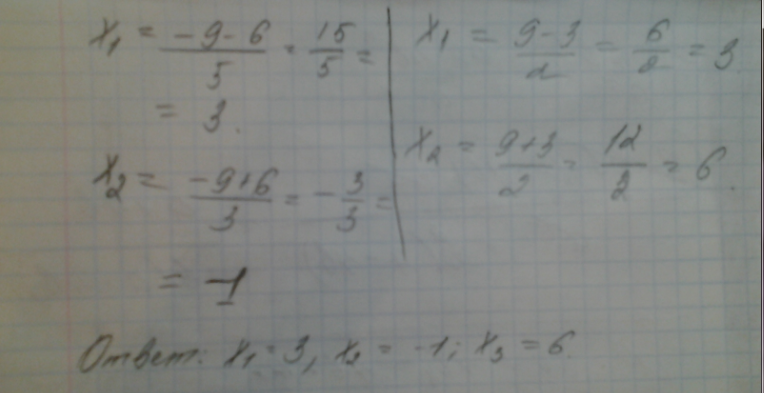 x₁ = (-9-6)/5 = 15/5 =
= 3.
x₂ = (-9+6)/3 = -3/3 =
= -1
x₁ = (9-3)/2 = 6/2 = 3
x₂ = (9+3)/2 = 12/2 = 6.
Ответ: x₁ = 3, x₂ = -1; x₃ = 6